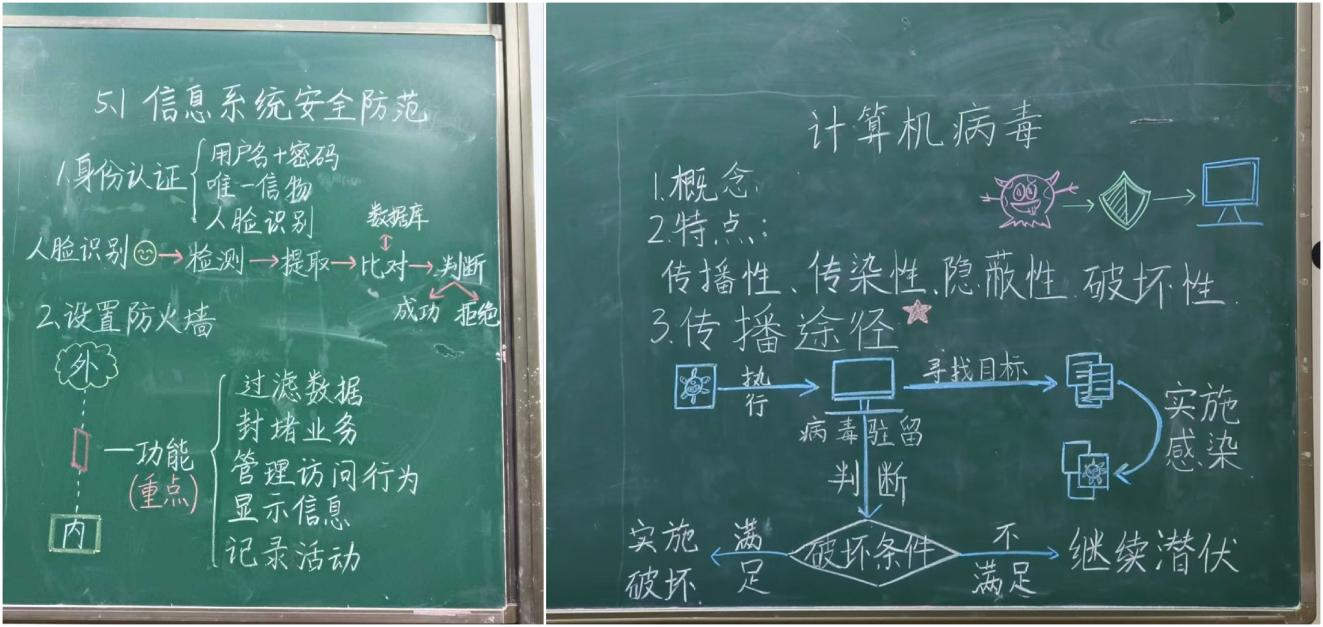 5.1 信息系统安全防范
1.身份认证
用户名+密码
唯一信物
人脸识别
数据库
人脸识别 检测 提取 比对 判断
成功 拒绝
2.设置防火墙
外
功能
(重点)
内
过滤数据
封堵业务
管理访问行为
显示信息
记录活动
计算机病毒
1.概念:
2.特点:
传播性、传染性、隐蔽性、破坏性
3.传播途径
执行
寻找目标
病毒驻留
实施感染
判断
破坏条件
满足
实施破坏
不满足
继续潜伏